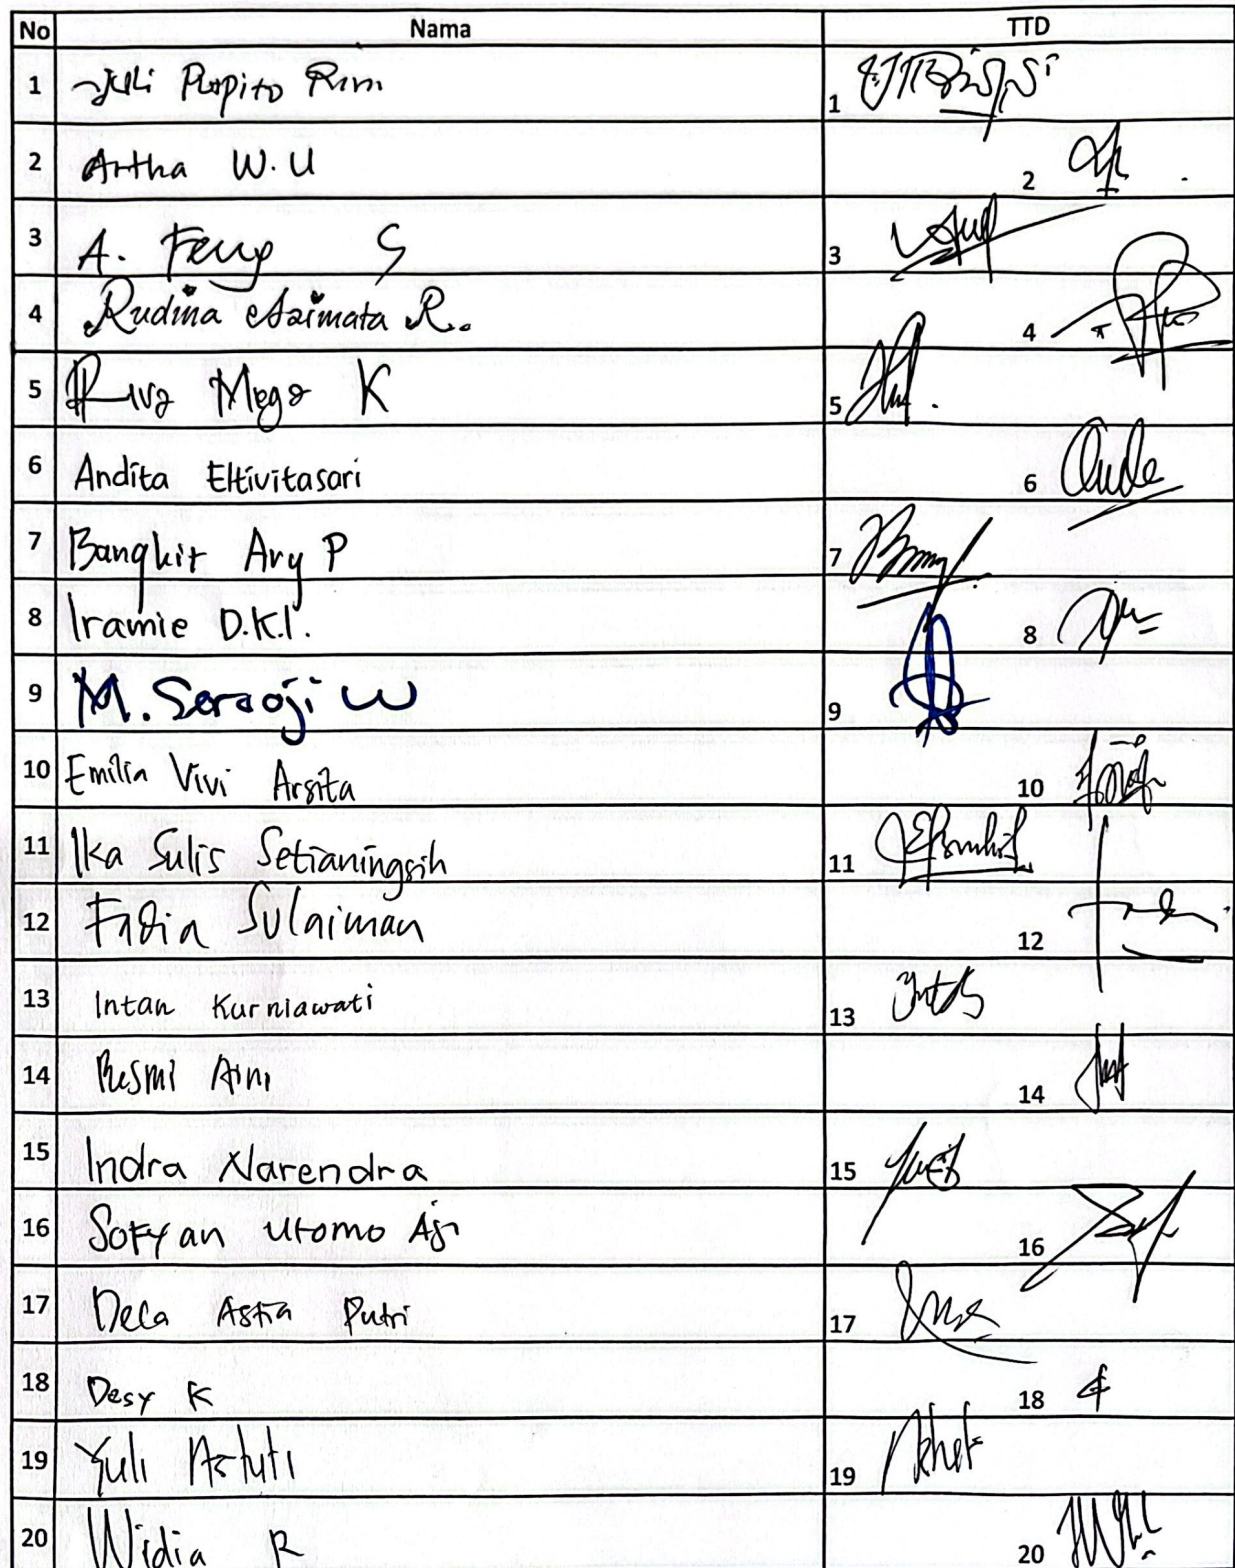 No Nama TTD
1 Juli Puspito Rini 1
2 Artha W.U 2
3 A. Feny S 3
4 Rudina Azimata R. 4
5 Riva Mega K 5
6 Andita Eltivitasari 6
7 Bangkit Ary P 7
8 Iramie D.K.I. 8
9 M. Seraoji W 9
10 Emilia Vivi Arsita 10
11 Ika Sulis Setianingsih 11
12 Fadia Sulaiman 12
13 Intan Kurniawati 13
14 Resmi Aini 14
15 Indra Narendra 15
16 Sofyan Utomo Aji 16
17 Deca Astia Putri 17
18 Desy K 18
19 Yuli Astuti 19
20 Widia R 20